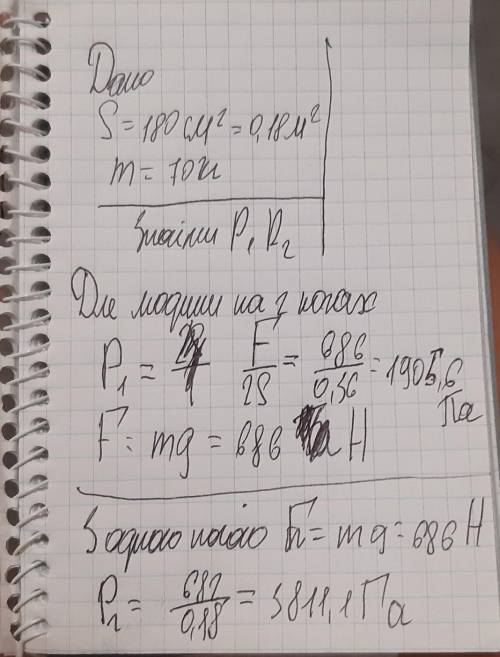 Дано
S = 180 см² = 0,18 м²
m = 70 кг
Знайти P₁ P₂
Для людини на 2 ногах
P₁ = F/2S = 686/0,36 = 1905,6 Па
F = mg = 686 Н
З одною ногою F = mg = 686 Н
P₂ = 686/0,18 = 3811,1 Па